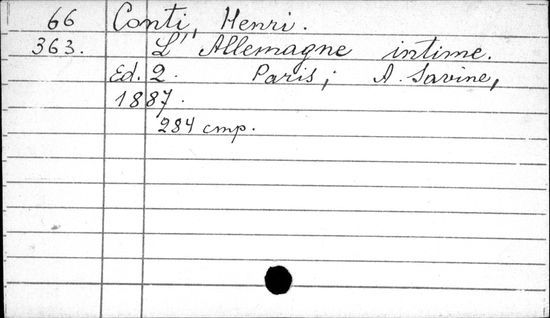 66 Conti, Henri.
363. L'Allemagne intime.
Ed. 2. Paris; A. Savine,
1887.
284 cmp.